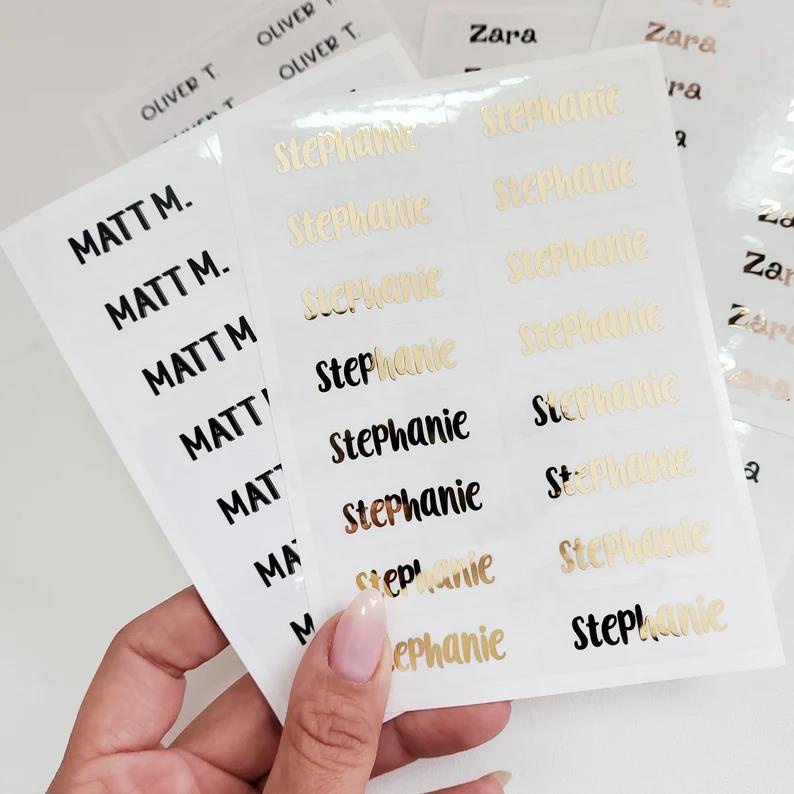 OLIVER T.
OLIVER T.
OLIVER T.
Zara
Zara
MATT M.
MATT M.
MATT M
MATT
MATT
MA
M
Stephanie Stephanie
Stephanie Stephanie
Stephanie Stephanie
Stephanie Stephanie
Stephanie Stephanie
Stephanie Stephanie
Stephanie Stephanie
tephanie Stephanie
Zara
Zara